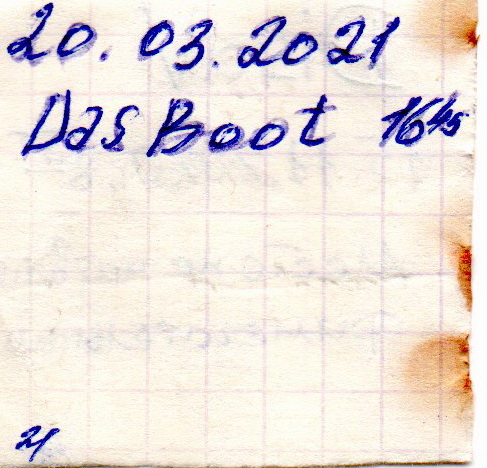 20.03.2021
Das Boot 16⁴⁵
21